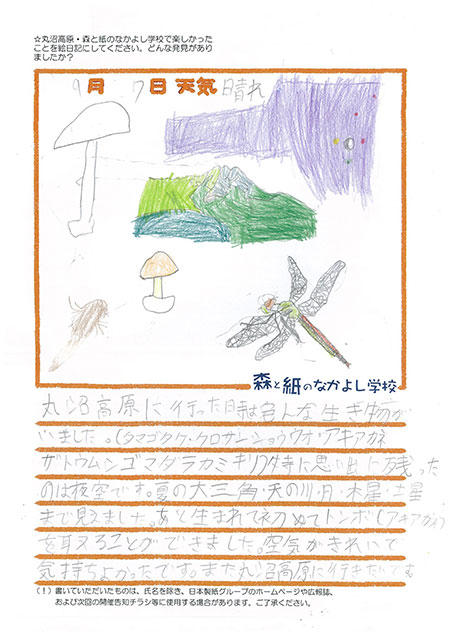 ☆丸沼高原・森と紙のなかよし学校で楽しかった
ことを絵日記にしてください。どんな発見があり
ましたか？
9月 7日 天気 晴れ
森と紙のなかよし学校
丸沼高原に行った時は色んな生き物が
いました。(タマゴタケ・クロサンショウウオ・アキアカネ
ザトウムシゴマダラカミキリ)特に思い出に残った
のは夜空です。夏の大三角・天の川・月・木星・土星
まで見えました。あと生まれて初めてトンボ(アキアカネ)
を取ることができました。空気がきれいで
気持ちよかったです。また丸沼高原に行きたいです
(！)書いていただいたものは、氏名を除き、日本製紙グループのホームページや広報誌、
および次回の開催告知チラシ等に使用する場合があります。ご了承ください。